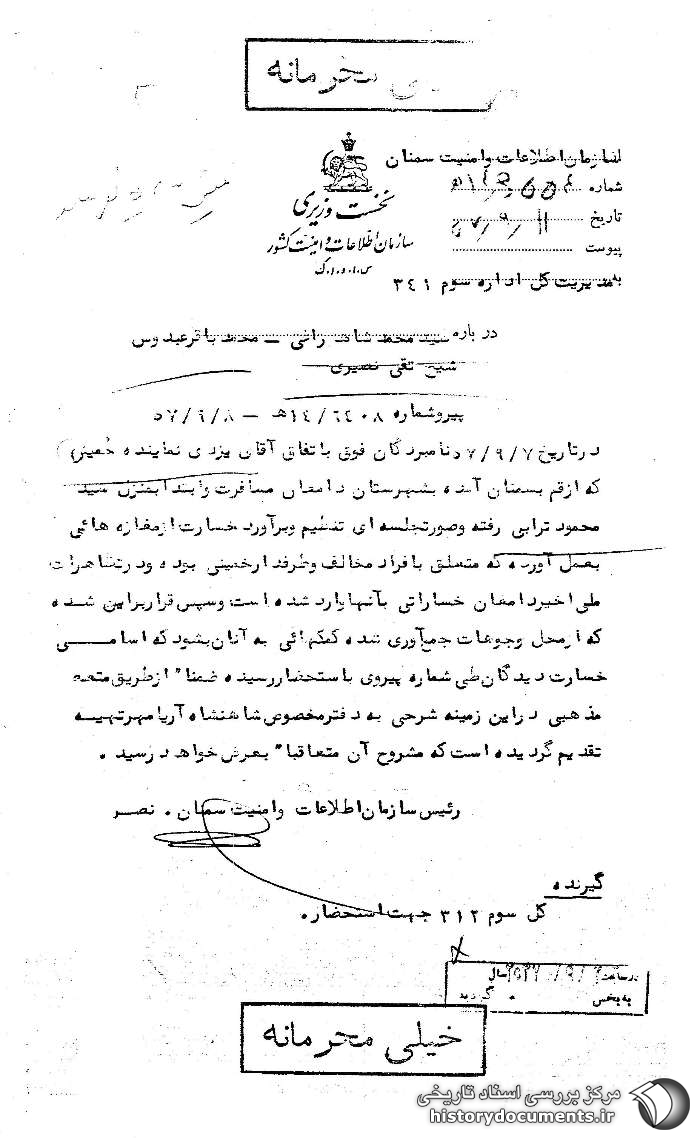 محرمانه
از سازمان اطلاعات و امنیت سمنان
شماره
تاریخ ۵۷/۹/۱۱
پیوست
نخست وزیری
سازمان اطلاعات و امنیت کشور
س.ا.و.ا.ک
به مدیریت کل اداره سوم ۳۴۱
درباره سید محمد شاهـ راغی ــ محمد باقر عبدوس
شیخ تقی نصیری
پیرو شماره ۱۴/۶۴۰۸هـ – ۵۷/۶/۸
در تاریخ ۵۷/۹/۷ نامبردگان فوق باتفاق آقای یزدی نماینده خمینی
که از قم بسمنان آمده بشهرستان دامغان مسافرت وابتدا بمنزل سید
محمود ترابی رفته وصورتجلسه ای تنظیم وبرآورد خسارت از مغازه هائی
بعمل آورده که متعلق بافراد مخالف وطرفدار خمینی بوده ودر تظاهرات
طی اخیر دامغان خساراتی بآنها وارد شده است وسپس قرار براین شده
که از محل وجوهات جمع‌آوری شده کمکهائی به آنان بشود که اسامی
خسارت دیدگان طی شماره پیروی باستحضار رسیده ضمنا" از طریق
مذهبی در این زمینه شرحی به دفتر مخصوص شاهنشاه آریامهر تهیه
تقدیم گردیده است که مشروح آن متعاقبا" بعرض خواهد رسید .
رئیس سازمان اطلاعات وامنیت سمنان . نصر
گیرنده
کل سوم ۳۱۲ جهت استحضار.
در ساعت
به بخش گردید
خیلی محرمانه
مرکز بررسی اسناد تاریخی
historydocuments.ir